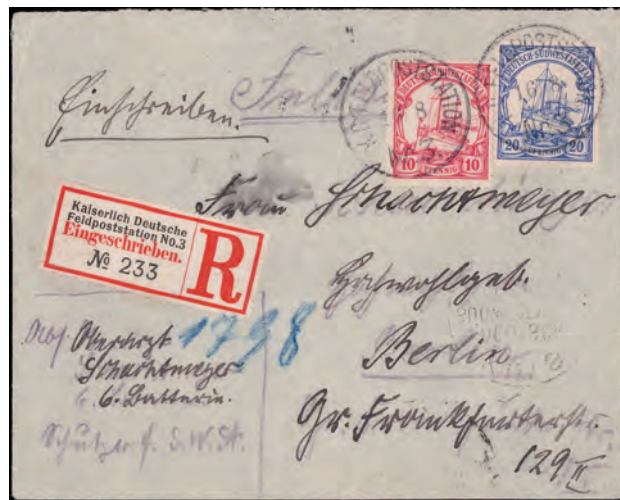 Einschreiben.
Feldpost
DEUTSCH-SÜDWESTAFRIKA
10 PFENNIG 10
DEUTSCH-SÜDWESTAFRIKA
20 PFENNIG 20
Frau Schachtmeyer
Kaiserlich Deutsche
Feldpoststation No.3
Eingeschrieben.
№ 233
R
Hochwohlgeb.
Berlin
Gr. Frankfurterstr.
129 II
1798
Abs. Oberarzt
Schachtmeyer
6. Batterie.
Schutztr. f. S.W.A.